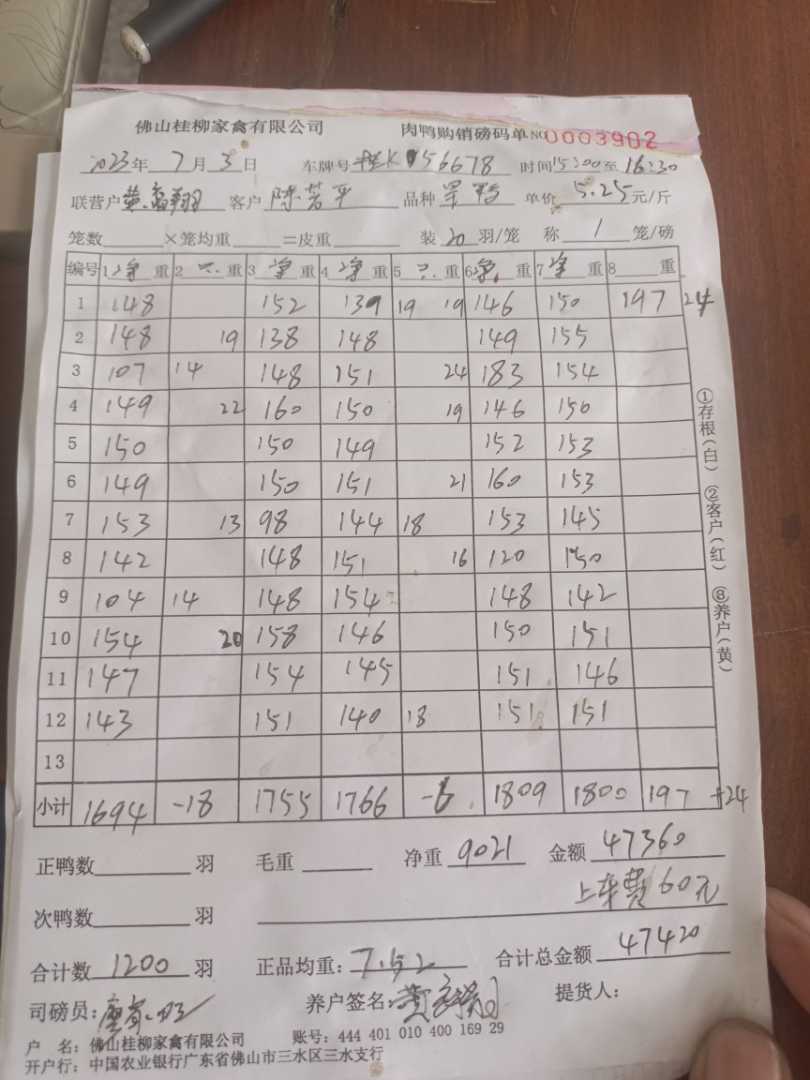 佛山桂柳家禽有限公司 肉鸭购销磅码单 NO 0003902
2023年 7月 3日 车牌号 56678 时间15:00至16:30
联营户 黄 翔 客户 陈芳平 品种 单价 5.25 元/斤
笼数 ×笼均重 =皮重 装 20 羽/笼 称 1 笼/磅
编号 1 净 重 2 只 重 3 净 重 4 净 重 5 只 重 6 净 重 7 净 重 8 重
1 148 152 139 19 19 146 150 197 24
2 148 19 138 148 149 155
3 107 14 148 151 24 183 154
4 149 22 160 150 19 146 150
5 150 150 149 152 153
6 149 150 151 21 160 153
7 153 13 98 144 18 153 145
8 142 148 151 16 120 150
9 104 14 148 154 148 142
10 154 20 158 146 150 151
11 147 154 145 151 146
12 143 151 140 18 151 151
13
小计 1694 -18 1755 1766 1809 1800 197 +24
①存根(白) ②客户(红) ③养户(黄)
正鸭数 羽 毛重 净重 9021 金额 47360
次鸭数 羽 上车费60元
合计数 1200 羽 正品均重: 7.52 合计总金额 47420
司磅员: 养户签名: 黄 提货人:
户 名: 佛山桂柳家禽有限公司 账号: 444 401 010 400 169 29
开户行: 中国农业银行广东省佛山市三水区三水支行